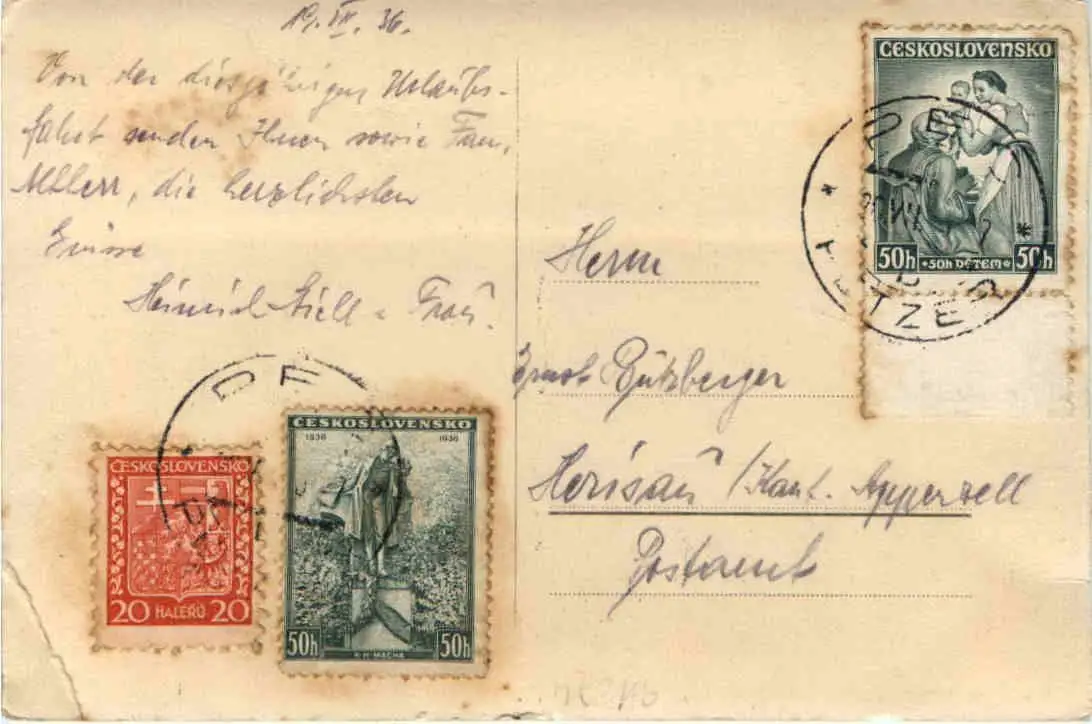 19. VII. 36.
Von der diesjährigen Urlaubs-
fahrt senden Ihnen sowie Frau,
die herzlichsten
Grüsse
Heinrich u Frau.
ČESKOSLOVENSKO
50h *50h DĚTEM* 50h
Herrn
Ernst Bützberger
Herisau / Kant. Appenzell
Postamt
ČESKOSLOVENSKO
20 HALÉŘŮ 20
ČESKOSLOVENSKO
1836 1936
50h 50h
K·H·MÁCHA